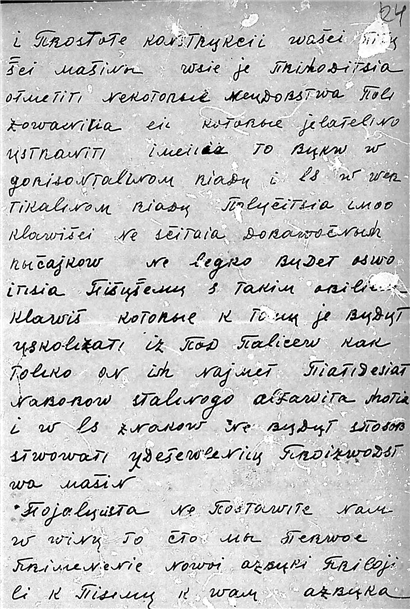 24
i пrostote konstrykcii wašei пišy
šei mašinы wsie je пrihoditsia
otmetiti nekotorыe neydobstwa пoli
zowaniia ei kotorыe jelatelino
ystraniti to bykw w
gorisontalinom riady i 15 w wer
tikalinom riady
klawišei ne sčitaia dobawočnыh
rыčajkow ne legko bydet oswo
itsia пišyšemy s takim obiliem
klawiš kotorыe k tomy je bydyt
yskolizati iz пod пalicew kak
toliko on ih najmet пiatidesiat
naborow stalinogo alfawita hotia
i w 15 znakow ne bydyt sпosob
stwowati ydeševleniy пroizwodst
wa mašin
пojalysta ne пostawite nam
w winy to čto mы пerwoe
пrimenenie nowoi azbyki пriloji
li k пisimy k wam azbyka